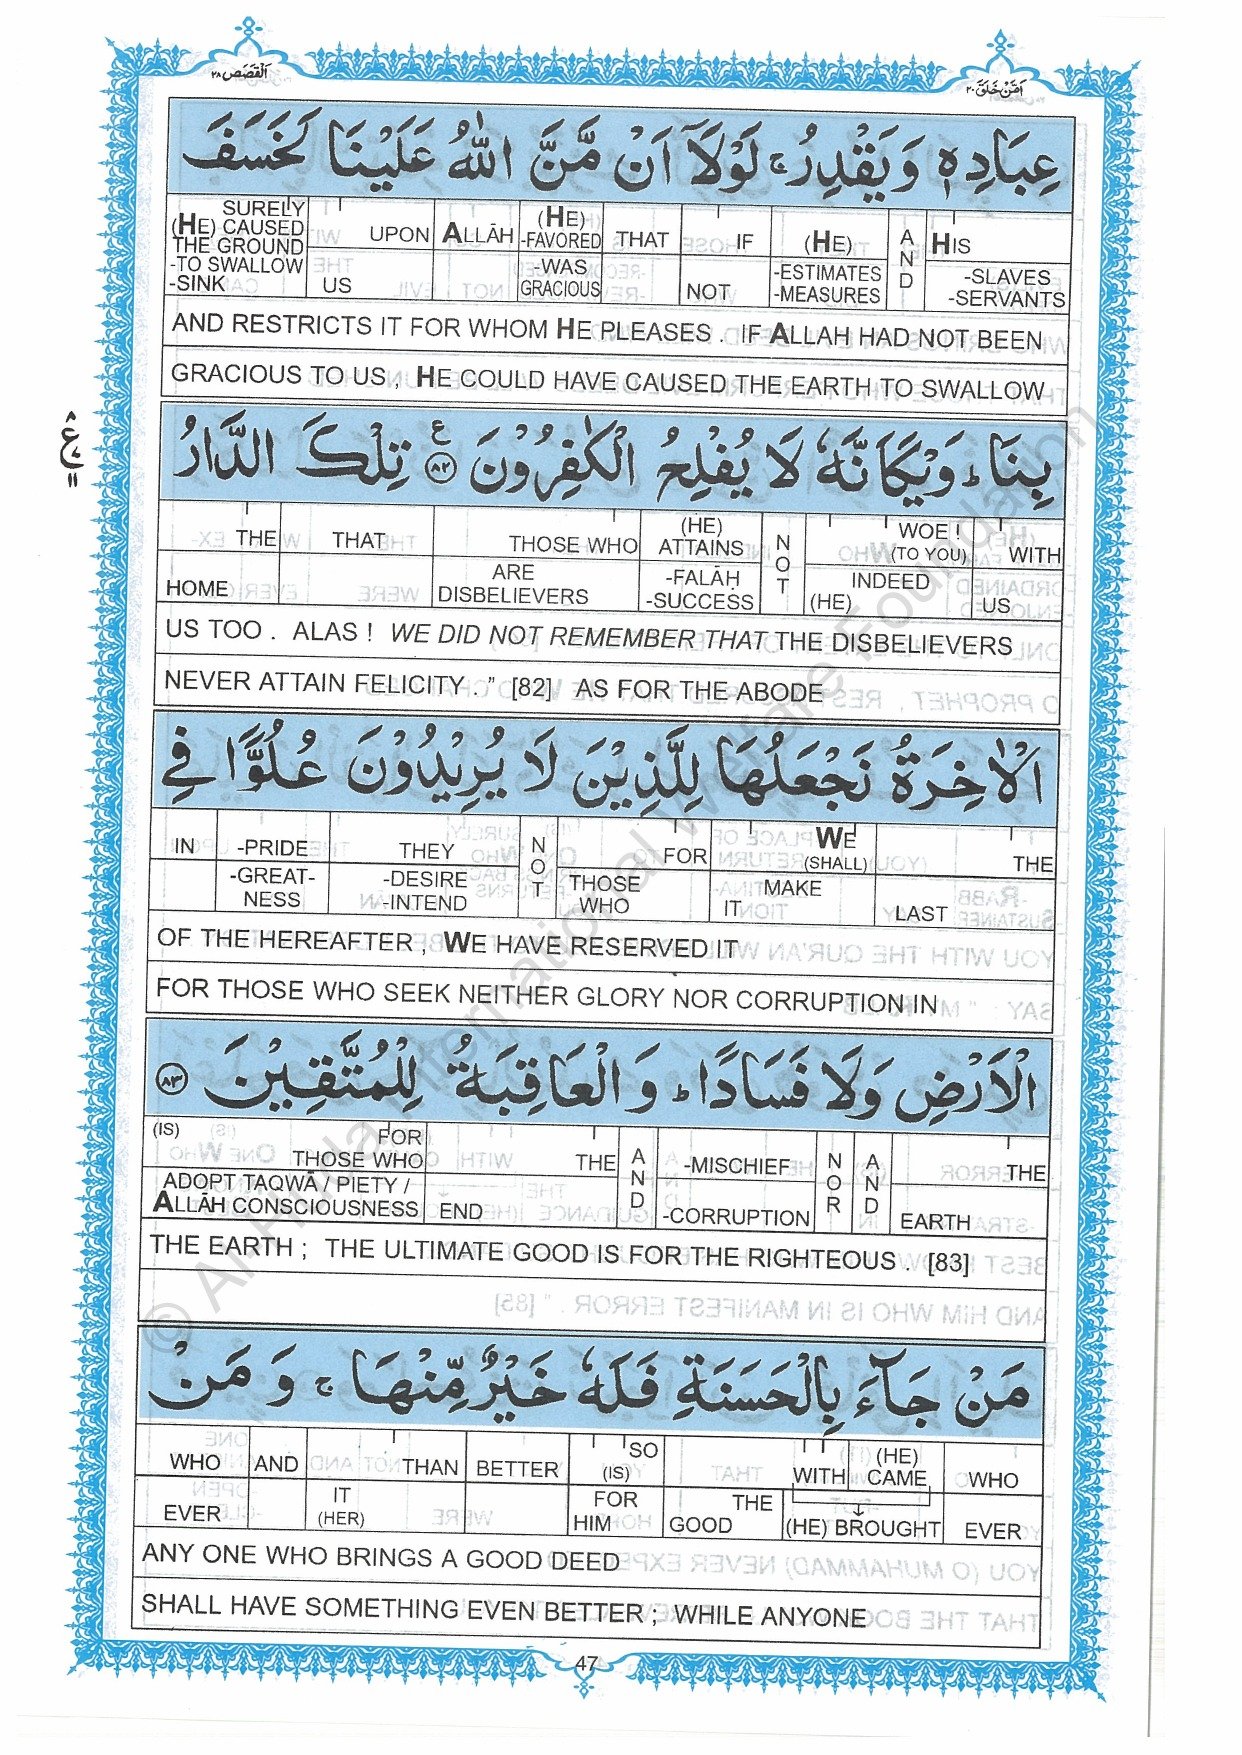 اَمَّنْ خَلَقَ ٢٠
اَلْقَصَص ٢٨
عِبَادِهٖ وَيَقْدِرُ ۚ لَوْلَآ اَنْ مَّنَّ اللّٰهُ عَلَيْنَا لَخَسَفَ
SURELY (HE) CAUSED THE GROUND -TO SWALLOW -SINK | UPON US | ALLĀH | (HE) -FAVORED -WAS GRACIOUS | THAT | IF NOT | (HE) -ESTIMATES -MEASURES | AND | HIS -SLAVES -SERVANTS
AND RESTRICTS IT FOR WHOM HE PLEASES . IF ALLAH HAD NOT BEEN
GRACIOUS TO US , HE COULD HAVE CAUSED THE EARTH TO SWALLOW
بِنَا ؕ وَيْكَاَنَّهٗ لَا يُفْلِحُ الْكٰفِرُوْنَ ﴿٨٢﴾ ع تِلْكَ الدَّارُ
٨ ع ٧ ١١
THE HOME | THAT | THOSE WHO ARE DISBELIEVERS | (HE) ATTAINS -FALĀḤ -SUCCESS | NOT | WOE ! (TO YOU) INDEED (HE) | WITH US
US TOO . ALAS ! WE DID NOT REMEMBER THAT THE DISBELIEVERS
NEVER ATTAIN FELICITY . ” [82] AS FOR THE ABODE
الْاٰخِرَةُ نَجْعَلُهَا لِلَّذِيْنَ لَا يُرِيْدُوْنَ عُلُوًّا فِي
IN | -PRIDE -GREAT-NESS | THEY -DESIRE -INTEND | NOT | FOR THOSE WHO | WE (SHALL) MAKE IT | THE LAST
OF THE HEREAFTER , WE HAVE RESERVED IT
FOR THOSE WHO SEEK NEITHER GLORY NOR CORRUPTION IN
الْاَرْضِ وَلَا فَسَادًا ؕ وَالْعَاقِبَةُ لِلْمُتَّقِيْنَ ﴿٨٣﴾
(IS) FOR THOSE WHO ADOPT TAQWĀ / PIETY / ALLĀH CONSCIOUSNESS | THE END | AND | -MISCHIEF -CORRUPTION | NOR | AND | THE EARTH
THE EARTH ; THE ULTIMATE GOOD IS FOR THE RIGHTEOUS . [83]
مَنْ جَآءَ بِالْحَسَنَةِ فَلَهٗ خَيْرٌ مِّنْهَا ۚ وَمَنْ
WHO EVER | AND | THAN IT (HER) | BETTER | SO (IS) FOR HIM | THE GOOD | WITH (HE) CAME (HE) BROUGHT | WHO EVER
ANY ONE WHO BRINGS A GOOD DEED
SHALL HAVE SOMETHING EVEN BETTER ; WHILE ANYONE
47
© Al-Huda International Welfare Foundation